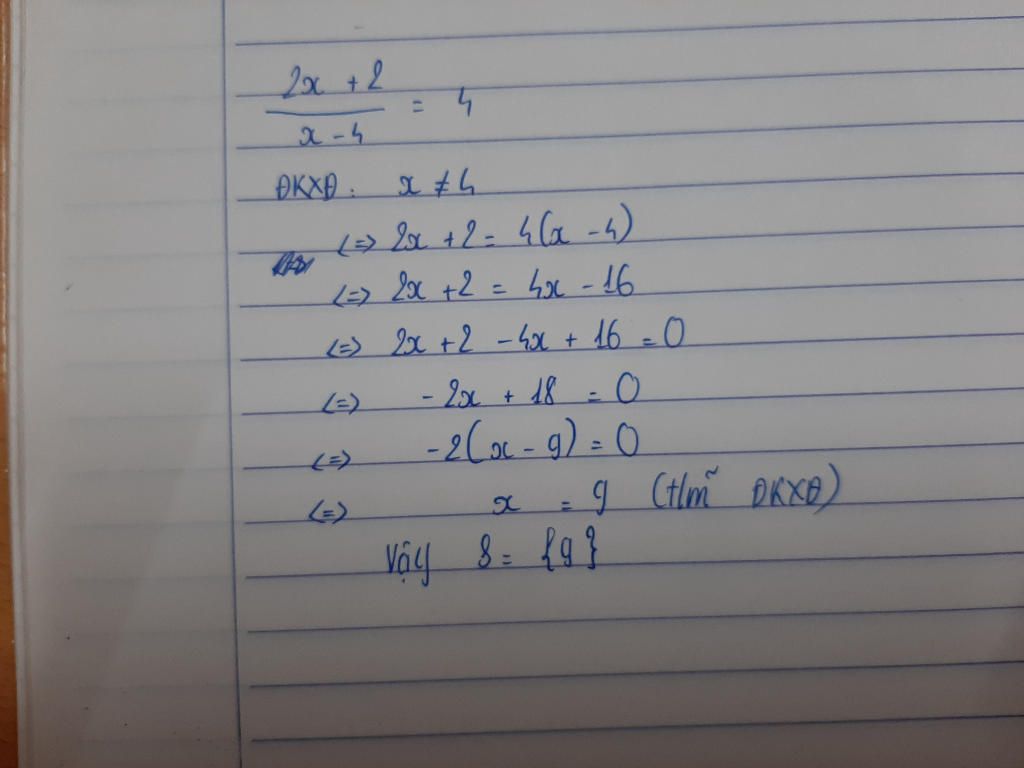 2x + 2
─── = 4
x - 4
ĐKXĐ: x ≠ 4
<=> 2x + 2 = 4(x - 4)
<=> 2x + 2 = 4x - 16
<=> 2x + 2 - 4x + 16 = 0
<=> -2x + 18 = 0
<=> -2(x - 9) = 0
<=> x = 9 (t/m ĐKXĐ)
Vậy S = {9}